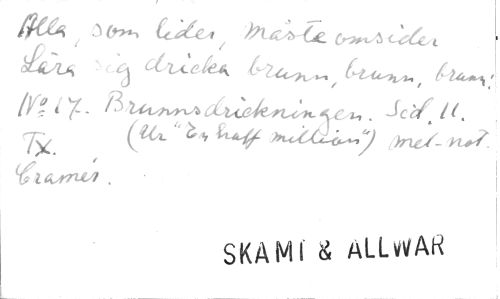 Alla, som lider, måste omsider
Lära sig dricka brunn, brunn, brunn!
No 17. Brunnsdrickningen. Sid. 11.
Tx. (Ur "En half million") mel-not.
Cramér.
SKÄMT & ALLWAR